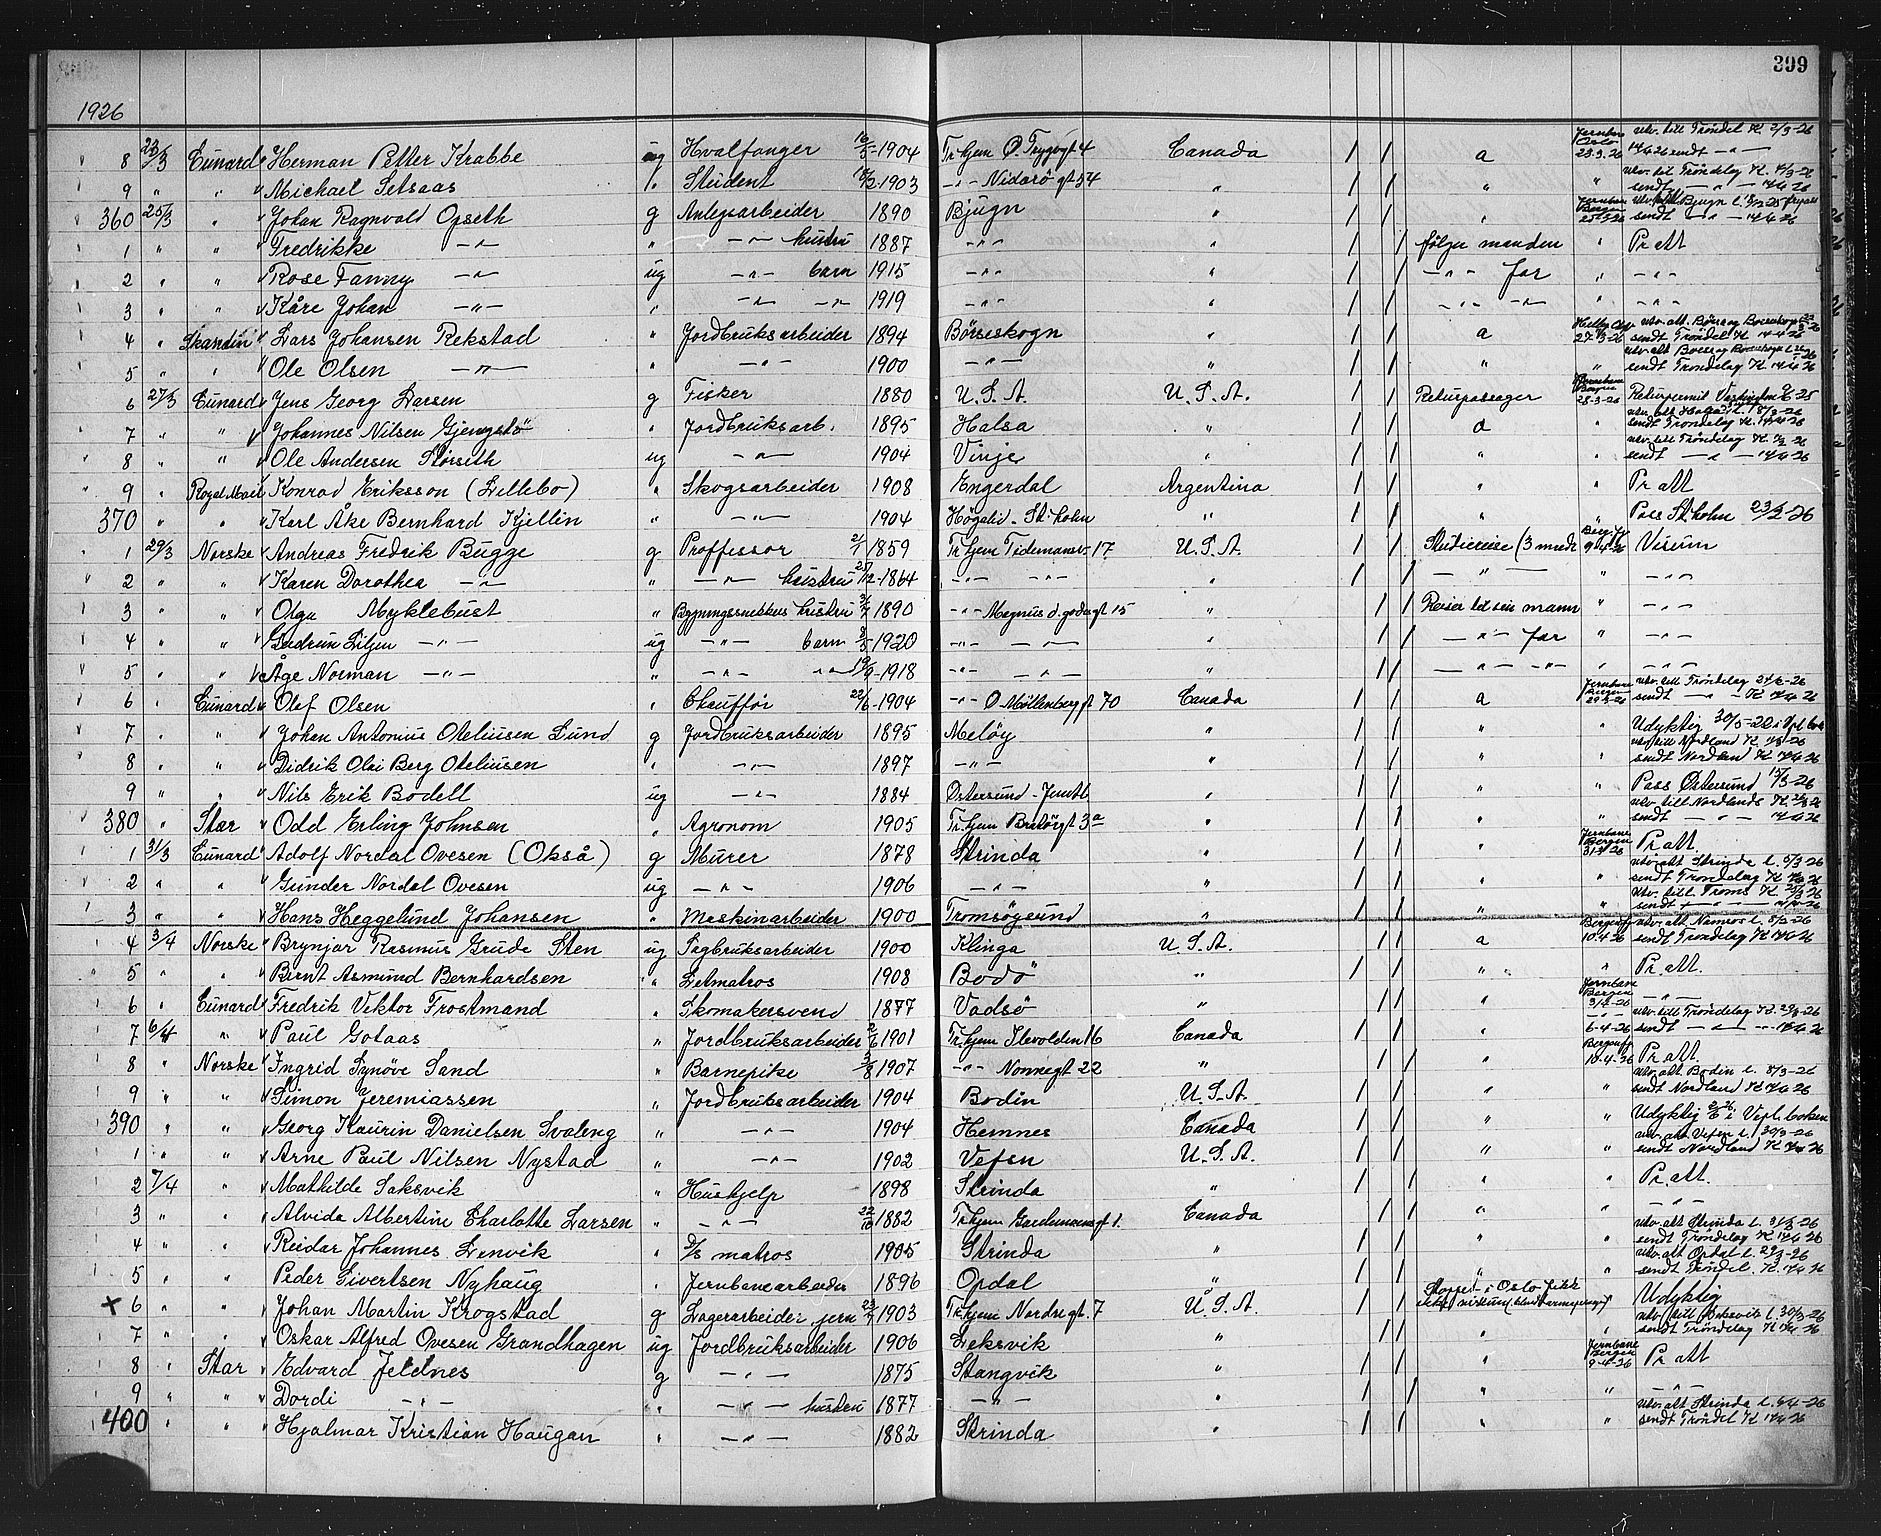 399
1926
8 23/3 Cunard Herman Petter Krabbe ug Hvalfanger 16/5-1904 Tr.hjem O. Trygvgt 4 Canada / / a Jernbane Oslo 23.3.26 utv. till Tröndel K. 2/3-26 14/4 26 sendt -"-
9 " " Michael Setsaas Student 1903 -"- Nidarö gt 54 " / / " " utv. till Tröndelag K. sendt -"- 14/4 26
360 25/3 " Johan Ragnvald Opseth g Anlegsarbeider 1890 Bjugn " / / " Jernbane Bergen sendt -"- 14/4 26
1 " " Fredrikke -"- " -"- hustru 1887 -"- " / / følger manden " Pr att
2 " " Rose Fanny -"- ug -"- barn 1915 -"- " / / -"- far " -"-
3 " " Kåre Johan -"- " -"- -"- 1919 -"- " / / -"- -"- " -"-
4 " Skandin Lars Johansen Rekstad " Jordbruksarbeider 1894 Börseskogn " / / a 27-3-26 sendt Tröndel K 14/4 26
5 " " Ole Olsen -"- " -"- 1900 -"- " / / " " sendt Tröndelag K. 14/4 26
6 27/3 Cunard Jens Georg Larsen g Fisker 1880 U.S.A. U.S.A. / / Returpassager Jernbane Bergen 28-3-26 Returpermit
7 " " Johannes Nilsen Gjengstö " Jordbruksarb. 1895 Halsa " / / a " utv. att Halsa l. 18/3-26 sendt Tröndelag K. 14/4 26
8 " " Ole Andersen Störseth ug -"- 1904 Vinje " / / " " utv. till Tröndelag K. sendt -"- 14/4 26
9 " Royal Mail Konrad Eriksson (Lillebo) " Skogsarbeider 1908 Engerdal Argentina / / " " Pr att
370 " " Karl Åke Bernhard Kjellin " -"- 1904 Högalid - St:holm " / / " " Pass St:holm 23/2-26
1 29/3 Norske Andreas Fredrik Bugge g Proffessor 2/1 1859 Tr.hjem Tidemansv 17 U.S.A. / / Studiereise (3 mndr Visum
2 " " Karen Dorothea -"- " -"- hustru 1864 -"- -"- " / / -"- " -"-
3 " " Olga Myklebust " hustru 1890 -"- Magnus d. godesgt 15 " / / Reiser til sin mann " -"-
4 " " Gudrun Liljen -"- ug -"- barn 1920 -"- -"- " / / -"- far " -"-
5 " " Åge Norman -"- " -"- -"- 1918 -"- -"- " / / -"- -"- " -"-
6 " Cunard Olaf Olsen " Chauffør 22/6-1904 -"- O Möllenberg gt 70 Canada / / a Jernbane Bergen utv. till Tröndelag sendt -"- K 14/4 26
7 " " Johan Antonius Oteliusen Lund g Jordbruksarbeider 1895 Melöy " / / " " Udyktig
8 " " Didrik Olai Berg Oteliusen " -"- 1897 -"- " / / " " utv. till Nordland K. sendt Nordland K 14/4 26
9 " " Nils Erik Bodell ug -"- 1884 Östersund - Jemtl " / / " " Pass Östersund 15/3-26
380 " Star Odd Erling Johnsen " Agronom 1905 Tr.hjem Bratörgt 3a " / / " " utv. till Nordlands K. sendt -"- 14/4 26
1 31/3 Cunard Adolf Nordal Ovesen (Okså) g Murer 1878 Strinda " / / " Jernbane Bergen Pr att.
2 " " Gunder Nordal Ovesen ug -"- 1906 -"- " / / " " utv. att Strinda l. 5/3-26 sendt Tröndelag K 14/4 26
3 " " Hans Heggelund Johansen " Maskinarbeider 1900 Tromsöysund " / / " " utv. till Troms K. sendt -"-
4 3/4 Norske Brynjar Rasmus Grude Sten ug Sagbruksarbeider 1900 Klinga U.S.A. / / a 10.4-26 utv. att Namsos l. 8/3-26 sendt Tröndelag K 14/4 26
5 " " Bernt Asmund Bernhardsen " Letmatros 1908 Bodö " / / " " Pr att.
6 " Cunard Fredrik Viktor Frostmand " Skomakersvend 1877 Vadsö " / / " Jernbane Bergen 3/4-26 -"-
7 6/4 " Paul Gotaas " Jordbruksarbeider 2/6 1901 Tr.hjem Ilevolden 16 Canada / / " 6-4-26 utv. till Tröndelag K. sendt -"- 14/4 26
8 " Norske Ingrid Synöve Sand " Barnepike 3/8 1907 -"- Nonnegt 22 " / / " Pr att.
9 " " Simon Jeremiassen " Jordbruksarbeider 1904 Bodin U.S.A. / / " " utv. att Bodin l. 8/3-26 sendt Nordland K 14/4 26
390 " " Georg Kaurin Danielsen Svaleng " -"- 1904 Hemnes Canada / / " " Udyktig i Vpl. boken
1 " " Arne Paul Nilsen Nystad " -"- 1902 Vefsn U.S.A. / / " " utv. att Vefsn l. 30/3-26 sendt Nordland K 14/4 26
2 7/4 " Mathilde Saksvik " Hushjelp 1898 Strinda " / / " " Pr att.
3 " " Alvida Albertine Charlotte Larsen " -"- 22/10 1882 Tr.hjem gt 1. Canada / / " " -"-
4 " " Reidar Johannes Lenvik " matros 1905 Strinda " / / " " utv. att Strinda l. 31/3-26 sendt Tröndelag K 14/4 26
5 " " Peder Sivertsen Nyhaug " Jernbanearbeider 1896 Opdal " / / " " utv. att Opdal l. sendt Tröndel. K. 14/4 26
× 6 " " Johan Martin Krogstad g Lagerarbeider jern 1903 Tr.hjem Nordregt. 7 U.S.A. / / Stoppet i Oslo fikk ikke visum Udyktig
7 " " Oskar Alfred Ovesen Grandhagen ug Jordbruksarbeider 1906 Leksvik " / / " " utv. till Leksvik l. 30/3-26 sendt Tröndelag K 14/4 26
8 " Star Edvard Jeldnes g -"- 1875 Stangvik " / / " Jernbane Bergen 9-4-26 Pr att
9 " " Dordi -"- " -"- hustru 1877 -"- " / / " " -"-
400 " " Hjalmar Kristian Haugan " -"- 1882 Strinda " / / " " utv. att Strinda l. 6/4-26 sendt Tröndel K 14/4 26